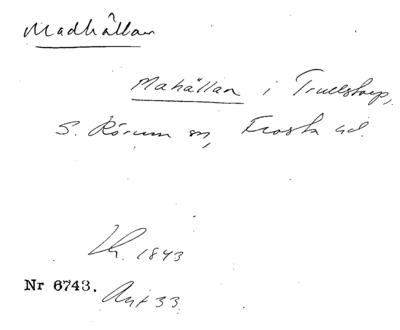 Madhällan
Mahällan i Truelstorp,
S. Rörum sn, Frosta hd.
Lh. 1843
Nr 6743. Ant 33